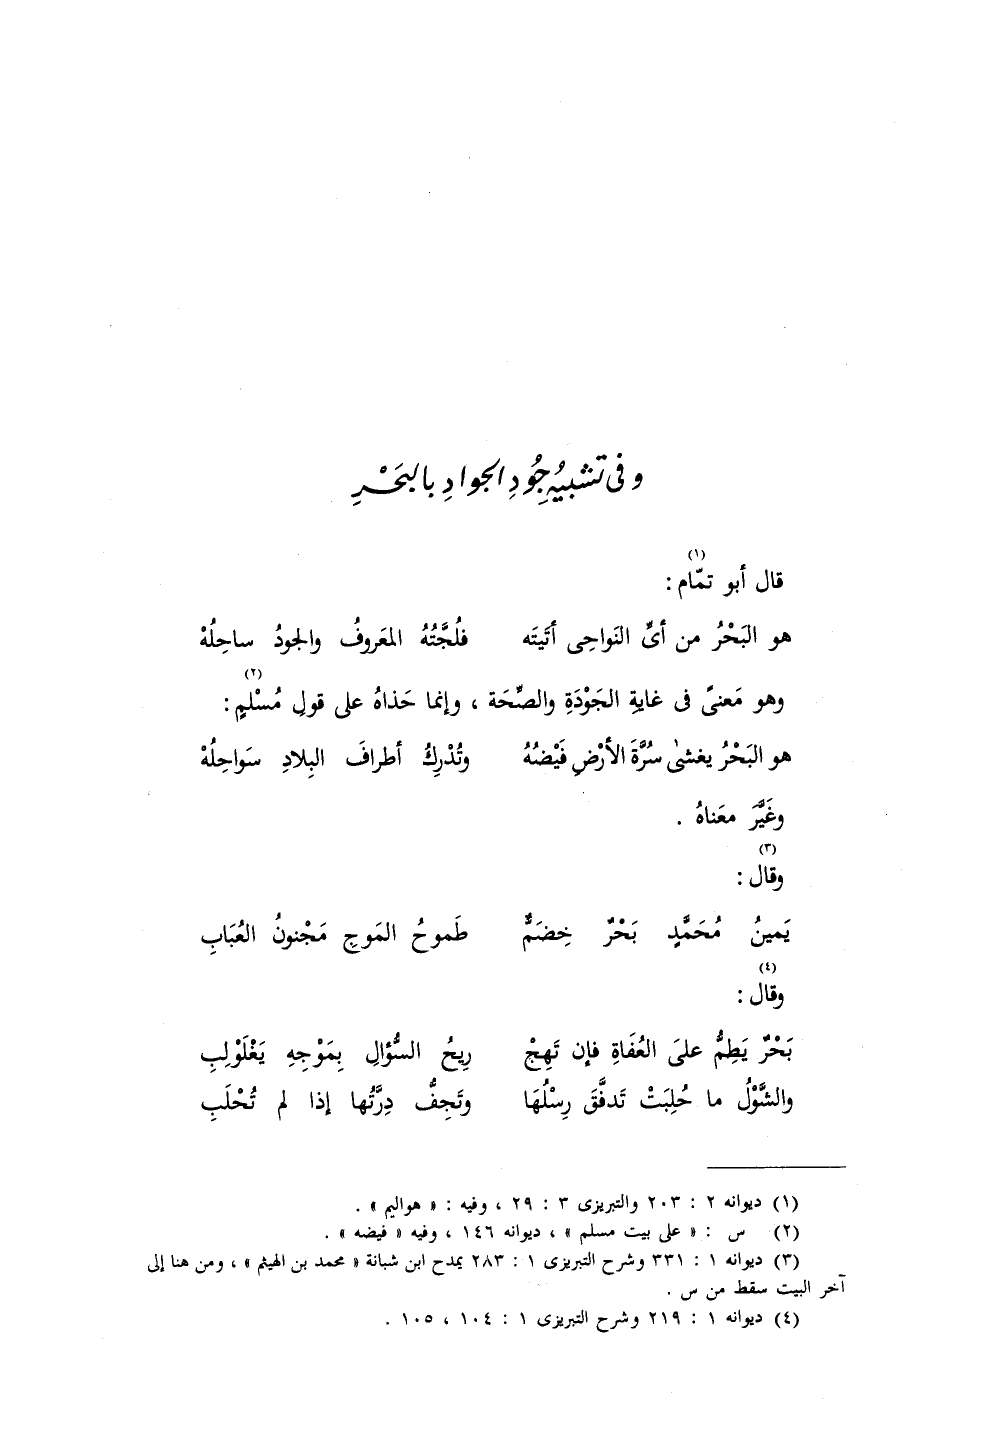 وفى تشبيهِ جُودِ الجوادِ بالبَحْرِ
قال أبو تمّام (١) :
هو البَحْرُ من أىِّ النَواحِى أتَيتَه فلُجَّتُهُ المَعَروفُ والجودُ ساحِلُهْ
وهو مَعنىً فى غايةِ الجَوْدَةِ والصِّحَة ، وإنما حَذاهُ على قولِ مُسْلمٍ (٢) :
هو البَحْرُ يغشىٰ سُرَّةَ الأرْضِ فَيْضُهُ وتُدْرِكُ أطرافَ البِلادِ سَواحِلُهْ
وغَيَّرَ معَناهُ .
وقال (٣) :
يَمينُ مُحَمَّدٍ بَحْرٌ خِضَمٌّ طَموحُ المَوجِ مَجْنونُ العُبَابِ
وقال (٤) :
بَحْرٌ يَطِمُّ علىَ العُفَاةِ فإن تَهِجْ رِيحُ السُّؤالِ بِمَوْجِهِ يَغْلَوْلِبِ
والشَّوْلُ ما حُلِبَتْ تَدفَّقَ رِسْلُهَا وتَجِفُّ دِرَّتُها إذا لم تُحْلَبِ
(١) ديوانه ٢ : ٢٠٣ والتبريزى ٣ : ٢٩ ، وفيه : « هواليم » .
(٢) س : « على بيت مسلم » ، ديوانه ١٤٦ ، وفيه « فيضه » .
(٣) ديوانه ١ : ٣٣١ وشرح التبريزى ١ : ٢٨٣ يمدح ابن شبانة « محمد بن الهيثم » ، ومن هنا إلى
آخر البيت سقط من س .
(٤) ديوانه ١ : ٢١٩ وشرح التبريزى ١ : ١٠٤ ، ١٠٥ .